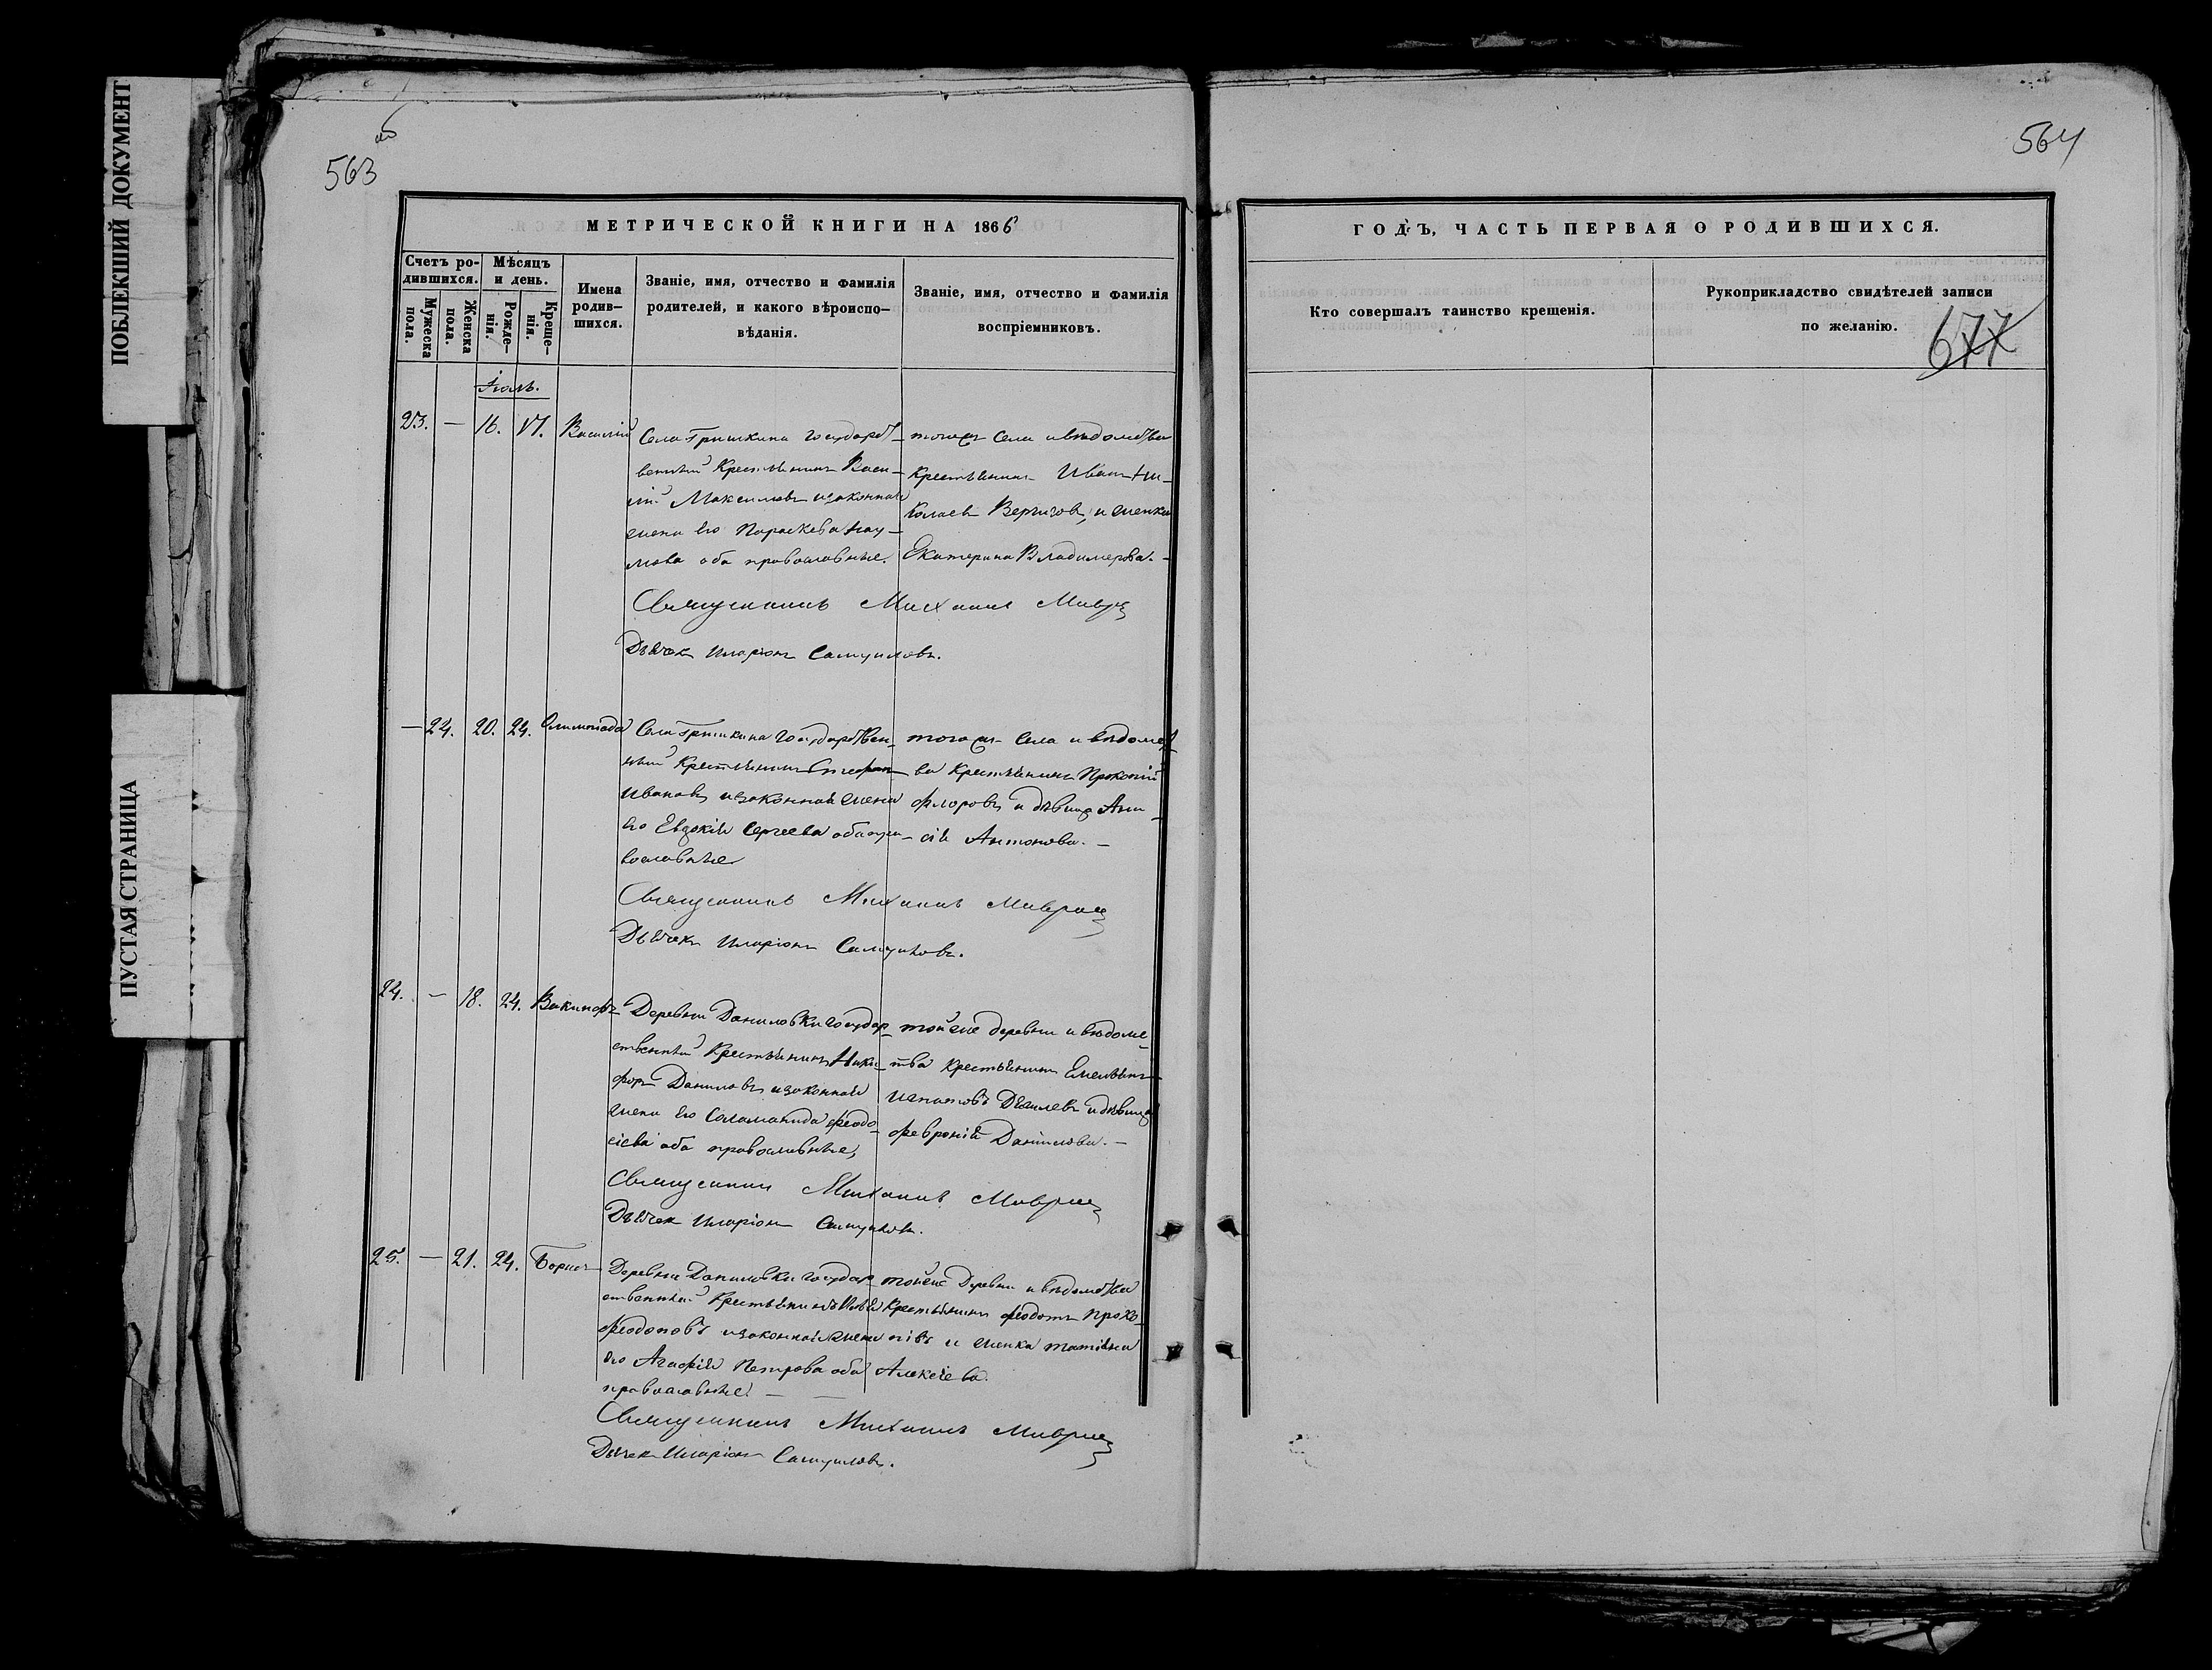 ПОБЛЕКШИЙ ДОКУМЕНТ
ПУСТАЯ СТРАНИЦА
563
МЕТРИЧЕСКОЙ КНИГИ НА 1866
Счетъ ро-
дившихся.
Мужеска
пола.
Женска
пола.
Мѣсяцъ
и день.
Рожде-
нія.
Креще-
нія.
Имена
родив-
шихся.
Званіе, имя, отчество и фамилія
родителей, и какого вѣроиспо-
вѣданія.
Званіе, имя, отчество и фамилія
воспріемниковъ.
Іюль.
23. — 16. 17. Василій
Села Гришкина государст-
венный Крестьянинъ Васи-
лій Максимовъ и законная
жена его Параскева Нау-
мова оба православные.
тогожъ села и вѣдомства
Крестьянинъ Иванъ Ни-
колаевъ и женка
Екатерина Владимерова. —
Священникъ Михаилъ
Дьячекъ Иларіонъ Самуиловъ.
— 24. 20. 24. Олимпіада
Села Гришкина государствен-
ный Крестьянинъ Стефанъ
Ивановъ и законная жена
его Евдокія Сергеева оба пра-
вославные
тогожъ села и вѣдомст-
ва Крестьянинъ Прокопій
Флоровъ и дѣвица Ани-
сія Антонова. —
Священникъ Михаилъ
Дьячекъ Иларіонъ Самуиловъ.
24. — 18. 24. Вакинфъ
Деревни Даниловки государ-
ственный Крестьянинъ Ники-
форъ Даниловъ и законная
жена его Саламанида Феодо-
сіева оба православные,
тойже деревни и вѣдомс-
тва Крестьянинъ Емельянъ
Игнатовъ и дѣвица
Февронія Данілова. —
Священникъ Михаилъ
Дьячекъ Иларіонъ Самуиловъ.
25. — 21. 24. Борисъ
Деревни Даниловки государ-
ственный Крестьянинъ
Феодотовъ и законная жена
его Агафія Петрова оба
православные. —
тойже Деревни и вѣдомства
Крестьянинъ Феодотъ Проко-
піевъ и женка Татіана
Алексіева.
Священникъ Михаилъ
Дьячекъ Иларіонъ Самуиловъ.
564
ГОДЪ, ЧАСТЬ ПЕРВАЯ О РОДИВШИХСЯ.
Кто совершалъ таинство крещенія.
Рукоприкладство свидѣтелей записи
по желанію.
677